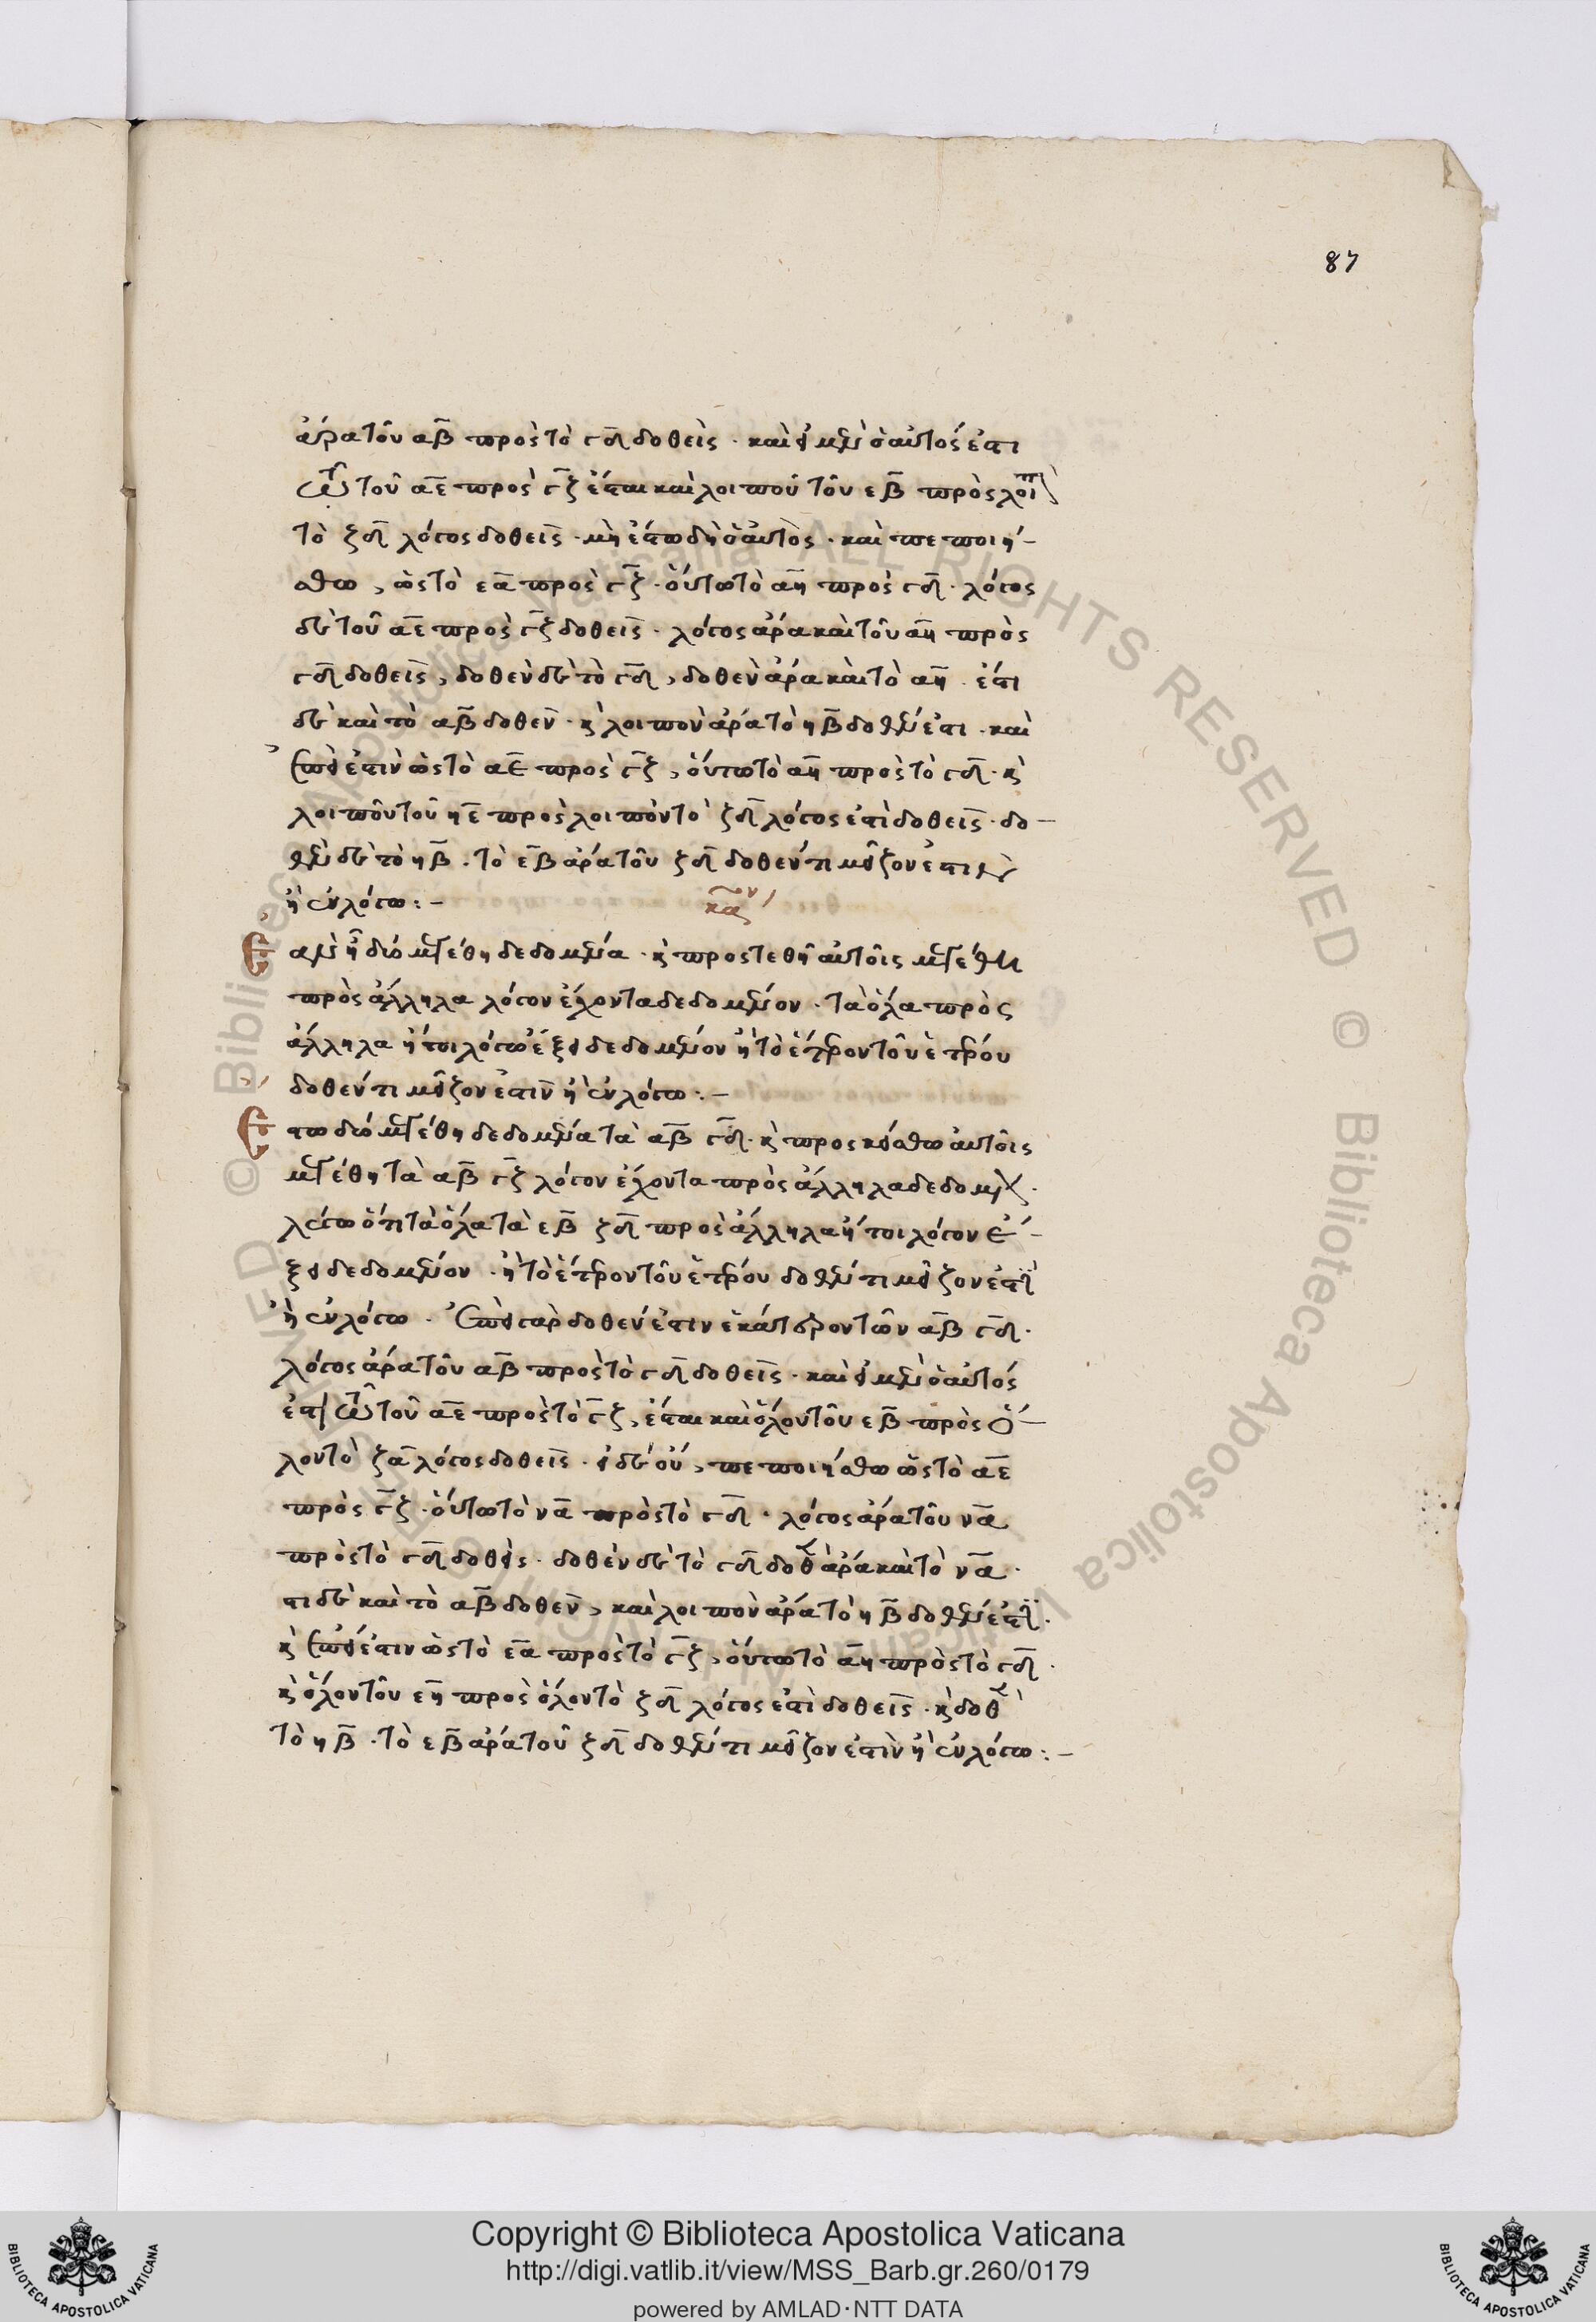 87
ἄρα τοῦ αβ πρὸς τὸ γδ δοθεὶς · καὶ εἰ μὲν ὁ αὐτός ἐστι
τῷ τοῦ αε πρὸς γζ ἔσται καὶ λοιποῦ τοῦ εβ πρὸς λοιπ
τὸ ζδ λόγος δοθεὶς · μὴ ἔστω δὴ ὁ αὐτὸς · καὶ πεποιή-
σθω, ὡς τὸ εα πρὸς γζ · οὕτω τὸ αη πρὸς γδ · λόγος
δὲ τοῦ αε πρὸς γζ δοθεὶς · λόγος ἄρα καὶ τοῦ αη πρὸς
γδ δοθεὶς, δοθὲν δὲ τὸ γδ, δοθὲν ἄρα καὶ τὸ αη · ἔστι
δὲ καὶ τὸ αβ δοθὲν · κ λοιπὸν ἄρα τὸ ηβ δοθέν ἐστι · καὶ
ἐπεί ἐστιν ὡς τὸ αε πρὸς γζ, οὕτω τὸ αη πρὸς τὸ γδ · κ
λοιποῦ τοῦ ηε πρὸς λοιπὸν τὸ ζδ λόγος ἐστὶ δοθεὶς · δο-
θὲν δὲ τὸ ηβ · τὸ εβ ἄρα τοῦ ζδ δοθέντι μεῖζον ἐστιν
ἢ ἐν λόγω :-
κα
Εαν ῇ δύο μεγέθη δεδομένα · κ προστεθῇ αὐτοῖς μεγέθη
πρὸς ἄλληλα λόγον ἔχοντα δεδομένον · τὰ ὅλα πρὸς
ἄλληλα ἤτοι λόγω ἕξει δεδομένον ἢ τὸ ἕτερον τοῦ ἑτέρου
δοθέντι μεῖζον ἐστιν ἢ ἐν λόγω :-
Εστω δύο μεγέθη δεδομένα τὰ αβ γδ · κ προσκείσθω αὐτοῖς
μεγέθη τὰ αβ γζ λόγον ἔχοντα πρὸς ἄλληλα δεδομέν ·
λέγω ὅτι τὰ ὅλα τὰ εβ ζδ πρὸς ἄλληλα ἤτοι λόγον ἕ-
ξει δεδομένον · ἢ τὸ ἕτερον τοῦ ἑτέρου δοθέντι μεῖζον ἐστὶ
ἢ ἐν λόγω · ἐπεὶ γὰρ δοθέν ἐστιν ἑκάτερον τῶν αβ γδ ·
λόγος ἄρα τοῦ αβ πρὸς τὸ γδ δοθεὶς · καὶ εἰ μὲν ὁ αὐτός
ἐστι τῷ τοῦ αε πρὸς τὸ γζ, ἔσται καὶ ὅλου τοῦ εβ πρὸς ὅ-
λον τὸ ζα λόγος δοθεὶς · εἰ δὲ οὔ, πεποιήσθω ὡς τὸ αε
πρὸς γζ · οὕτω τὸ να πρὸς τὸ γδ · λόγος ἄρα τοῦ να
πρὸς τὸ γδ δοθεὶς · δοθὲν δὲ τὸ γδ δοθ ἄρα καὶ τὸ να ·
στι δὲ καὶ τὸ αβ δοθὲν, καὶ λοιπὸν ἄρα τὸ ηβ δοθέν ἐστὶ ·
κ ἐπεί ἐστιν ὡς τὸ εα πρὸς τὸ γζ, οὕτω τὸ αη πρὸς τὸ γδ ·
κ ὅλου τοῦ εη πρὸς ὅλον τὸ ζδ λόγος ἐστὶ δοθεὶς · κ δοθ
τὸ ηβ · τὸ εβ ἄρα τοῦ ζδ δοθέντι μεῖζον ἐστὶν ἢ ἐν λόγω :-
Copyright © Biblioteca Apostolica Vaticana
http://digi.vatlib.it/view/MSS_Barb.gr.260/0179
powered by AMLAD·NTT DATA